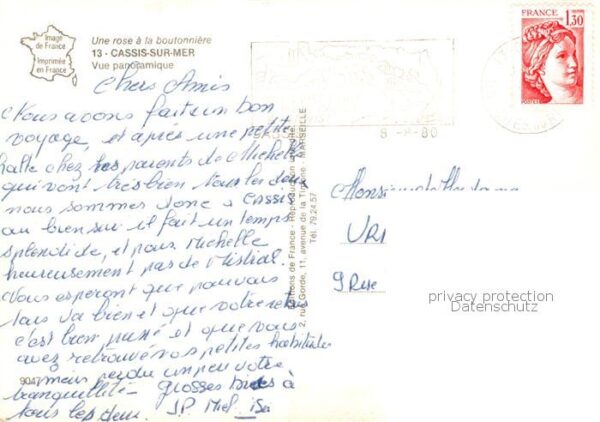 Image
de France
Imprimée
en France
Une rose à la boutonnière
13 - CASSIS-SUR-MER
Vue panoramique
FRANCE
1,30
POSTES
8 - 80
Chers Amis
Nous avons fait un bon
voyage, et après une petite
halte chez les parents de Michelle
qui vont très bien tous les deux
nous sommes donc a Cassis
ou bien sur il fait un temps
splendide, et pour Michelle
heureusement pas de Mistral.
Nous esperont que pour vous
tous va bien et que votre
c'est bien passé et que vous
avez retrouvé vos petites habitudes
perdu un peu votre
tranquillité - grosses bises à
tous les deux.
9047
Editions de France - Reproduction
2, rue Gorde, 11, avenue de la Timone MARSEILLE
Tél. 79.24.57
Monsieur
URI
9 Rue
privacy protection
Datenschutz